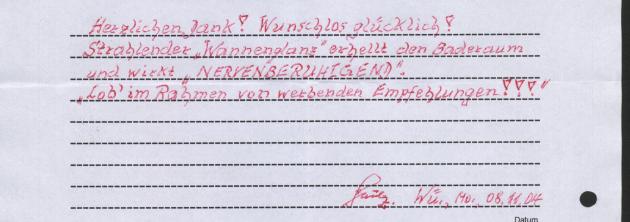 Herzlichen Dank! Wunschlos glücklich!
Strahlender „Wannenglanz" erhellt den Baderaum
und wirkt „NERVENBERUHIGEND".
„Lob" im Rahmen von werbenden Empfehlungen!!!"
Wü., Mo., 08.11.04
Datum